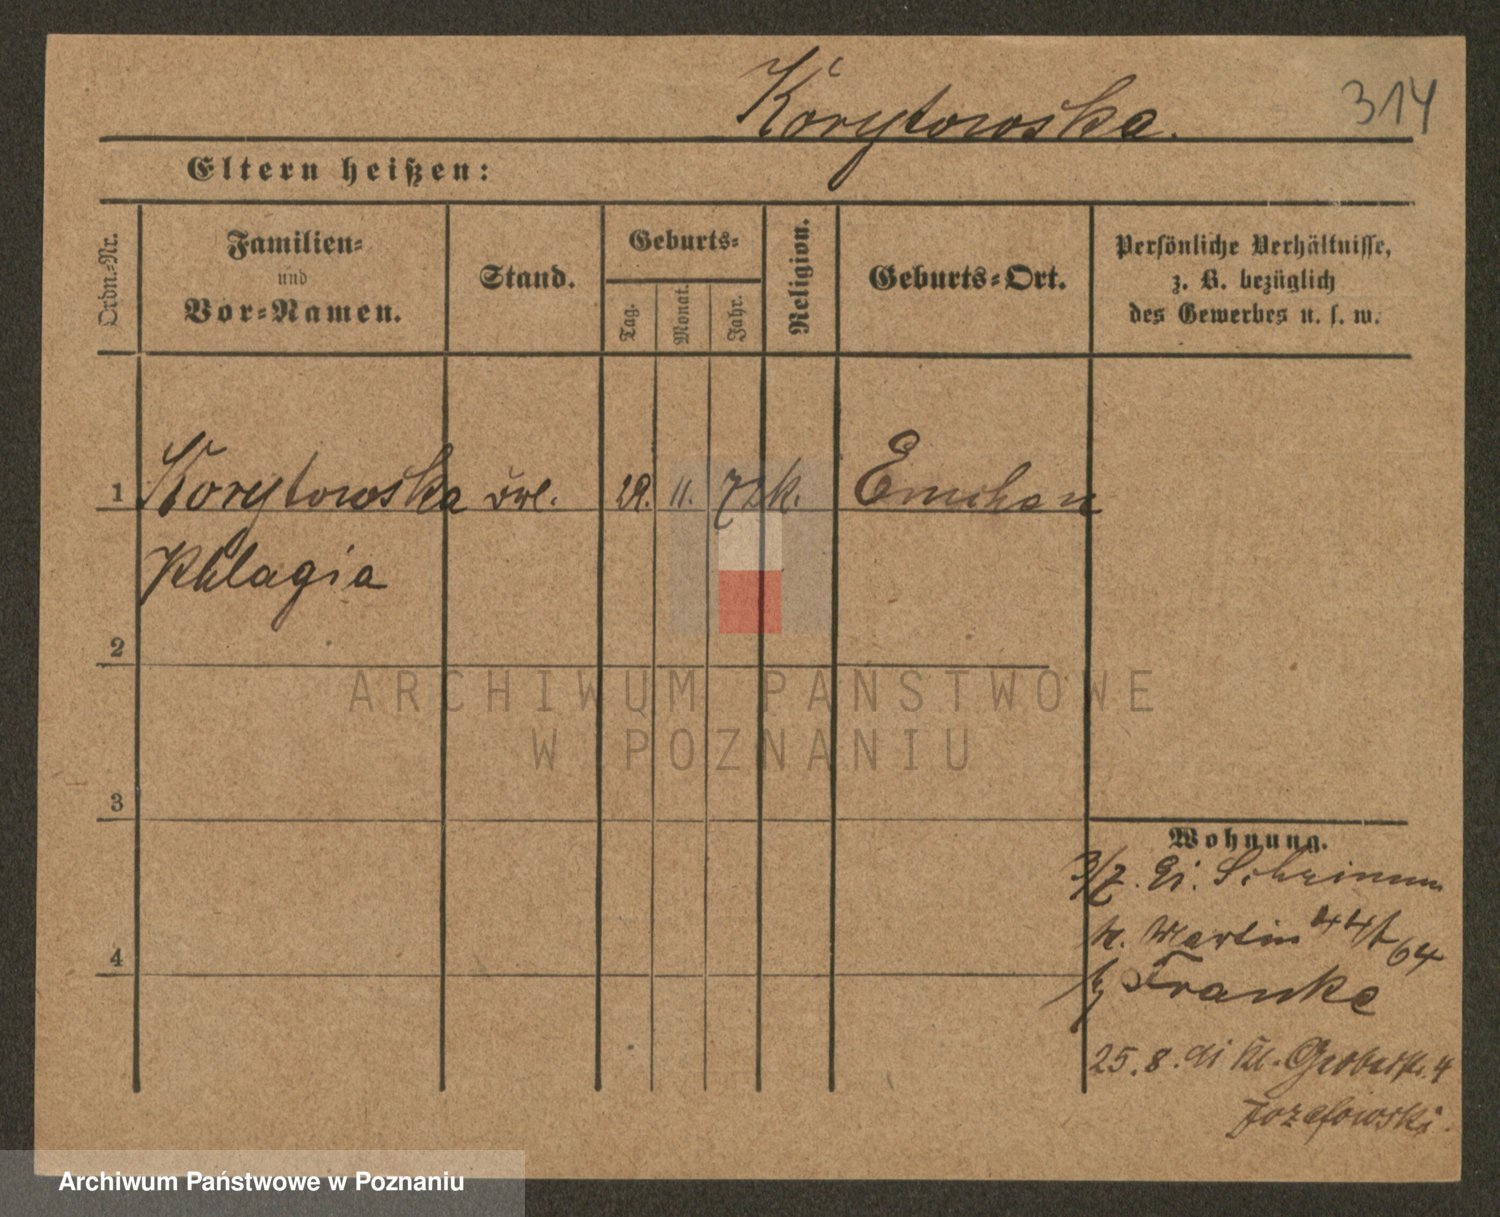 Korytowska.
314
Eltern heißen:
Ordn.-Nr.
Familien-
und
Vor-Namen.
Stand.
Geburts-
Tag.
Monat.
Jahr.
Religion.
Geburts-Ort.
Persönliche Verhältnisse,
z. B. bezüglich
des Gewerbes u. s. w.
1 Korytowska 29. 11. 72 k.
Pelagia
2
3
4
Wohnung.
3/7.
Martin 44/
64
Franke
25. 8. 91 Kl. 4
Jozefowski.
ARCHIWUM PAŃSTWOWE
W POZNANIU
Archiwum Państwowe w Poznaniu